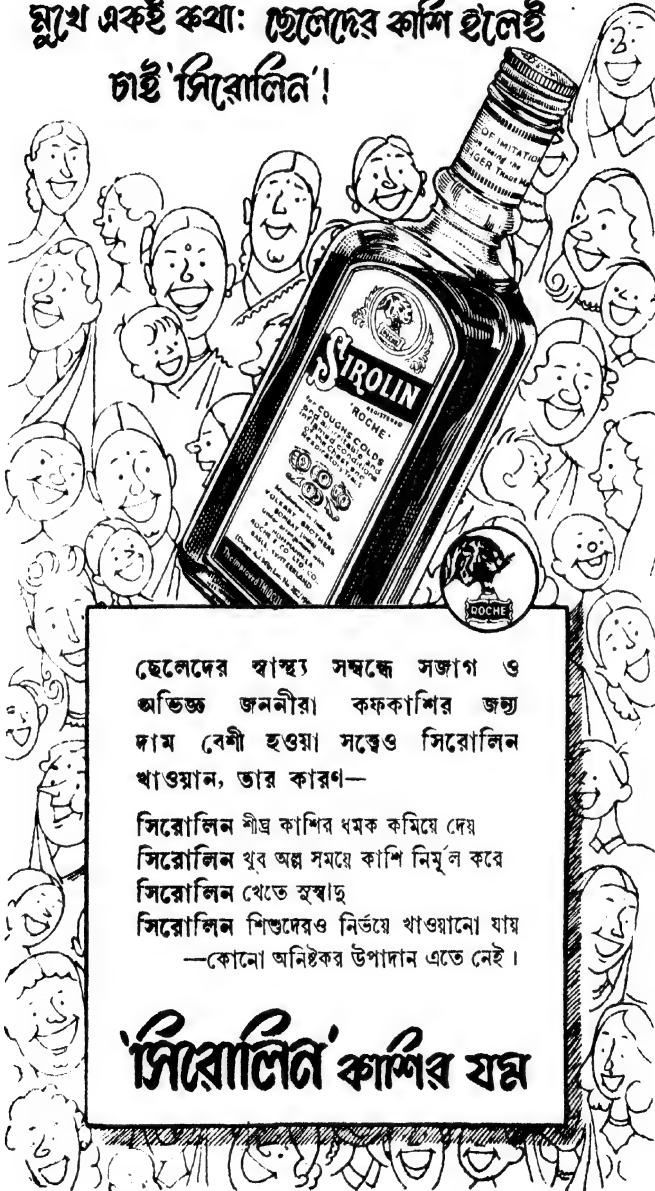 মুখে একই কথা: ছেলেদের কাশি হ'লেই
চাই 'সিরোলিন'!
OF IMITATION
TRADE M
ROCHE
SIROLIN
REGISTERED
'ROCHE'
for COUGHS COLDS
BOMBAY
BASLE, SWITZERLAND
ROCHE
ছেলেদের স্বাস্থ্য সম্বন্ধে সজাগ ও
অভিজ্ঞ জননীরা কফকাশির জন্য
দাম বেশী হওয়া সত্ত্বেও সিরোলিন
খাওয়ান, তার কারণ—
সিরোলিন শীঘ্র কাশির ধমক কমিয়ে দেয়
সিরোলিন খুব অল্প সময়ে কাশি নির্মূল করে
সিরোলিন খেতে সুস্বাদু
সিরোলিন শিশুদেরও নির্ভয়ে খাওয়ানো যায়
—কোনো অনিষ্টকর উপাদান এতে নেই।
'সিরোলিন' কাশির যম